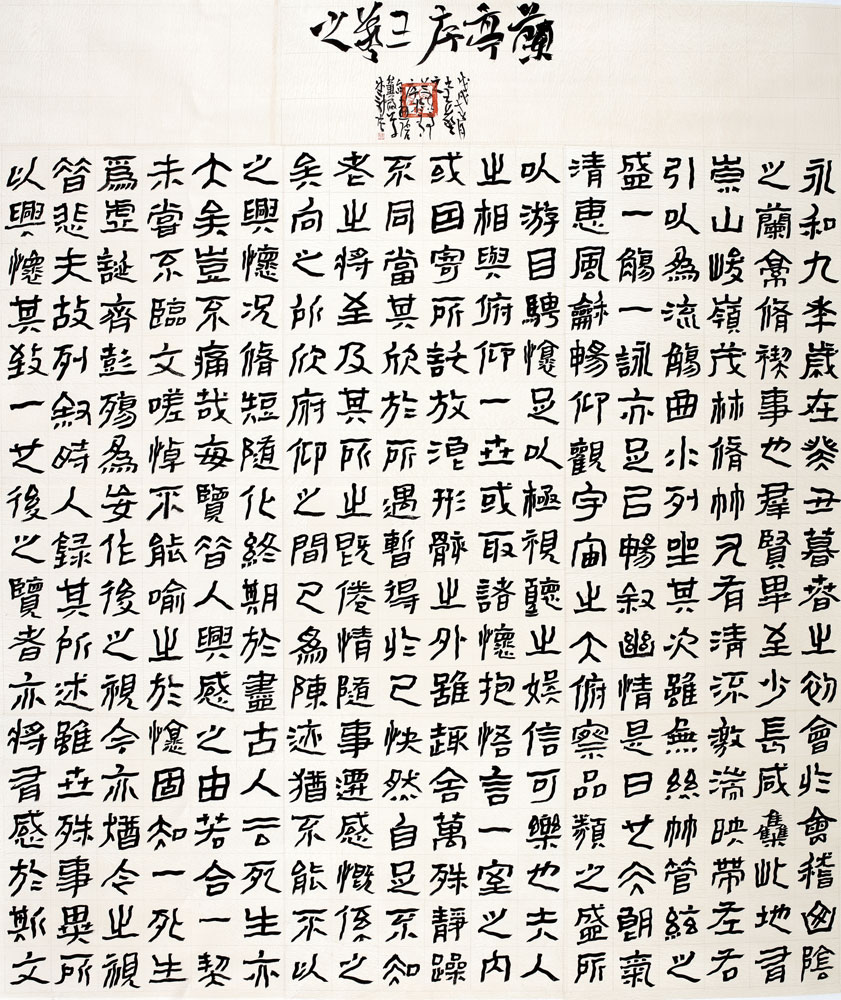 蘭亭序王羲之
永和九秊歲在癸丑暮春之初會於會稽山陰
之蘭亭脩禊事也羣賢畢至少長咸集此地有
崇山峻嶺茂林脩竹又有清流激湍映帶左右
引以爲流觴曲水列坐其次雖無絲竹管絃之
盛一觴一詠亦足以暢敘幽情是日也天朗氣
清惠風龢暢仰觀宇宙之大俯察品類之盛所
以游目騁懷足以極視聽之娛信可樂也夫人
之相與俯仰一世或取諸懷抱悟言一室之內
或因寄所託放浪形骸之外雖趣舍萬殊靜躁
不同當其欣於所遇暫得於己快然自足不知
老之將至及其所之既倦情隨事遷感慨係之
矣向之所欣俯仰之間已爲陳迹猶不能不以
之興懷況脩短隨化終期於盡古人云死生亦
大矣豈不痛哉每覽昔人興感之由若合一契
未嘗不臨文嗟悼不能喻之於懷固知一死生
爲虛誕齊彭殤爲妄作後之視今亦猶今之視
昔悲夫故列敘時人錄其所述雖世殊事異所
以興懷其致一也後之覽者亦將有感於斯文